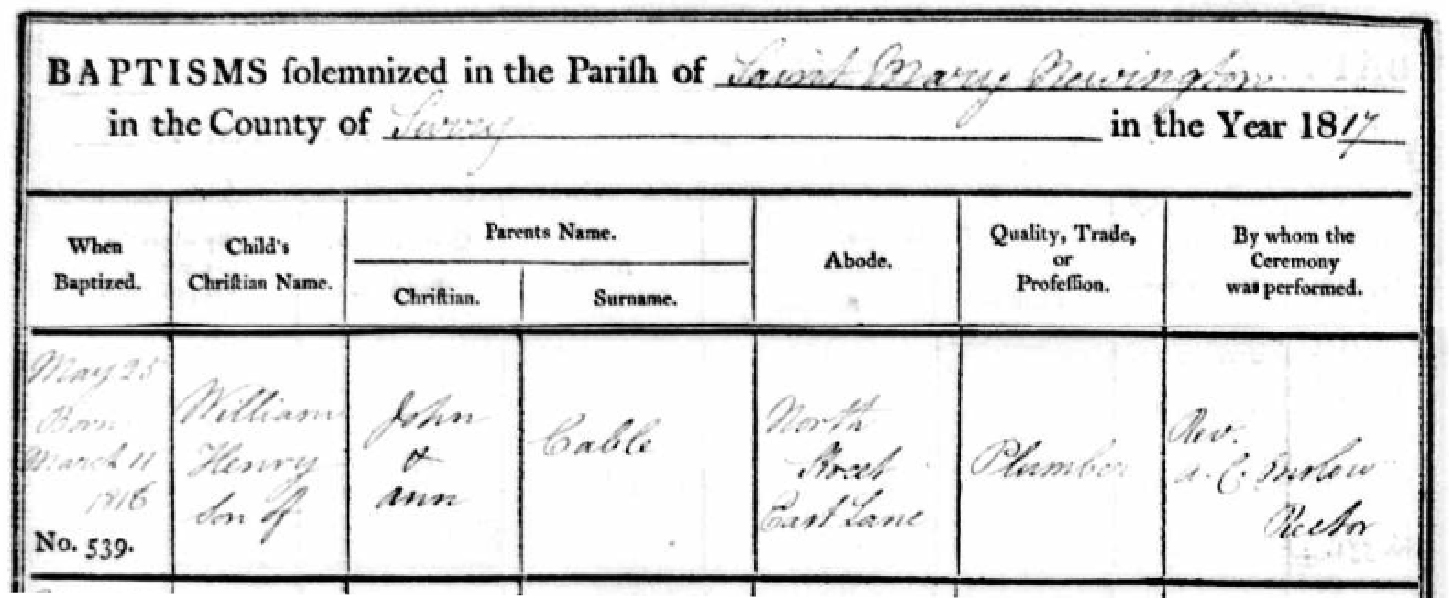 BAPTISMS ſolemnized in the Pariſh of Saint Mary Newington
in the County of Surry in the Year 1817
When
Baptized.
Child's
Chriſtian Name.
Parents Name.
Chriſtian.
Surname.
Abode.
Quality, Trade,
or
Profeſſion.
By whom the
Ceremony
was performed.
May 25
Born
March 11
1816
No. 539.
William
Henry
Son of
John
&
Ann
Cable
North
Street
East Lane
Plumber
Rev.
A. C. Onslow
Rector